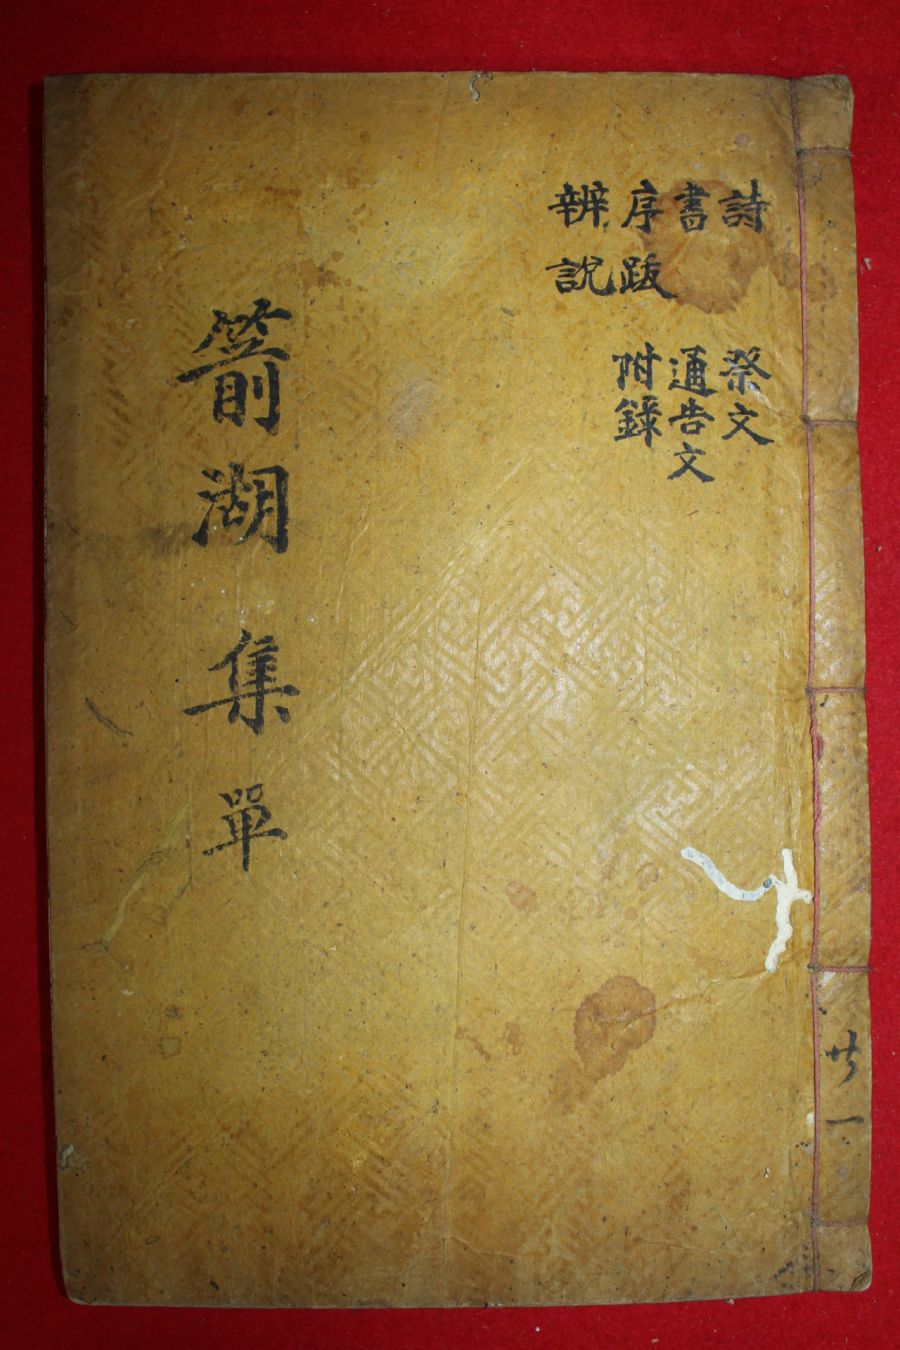 詩
書
序
辨
跋
說
祭文
通告文
附錄
箭湖集 單
共一